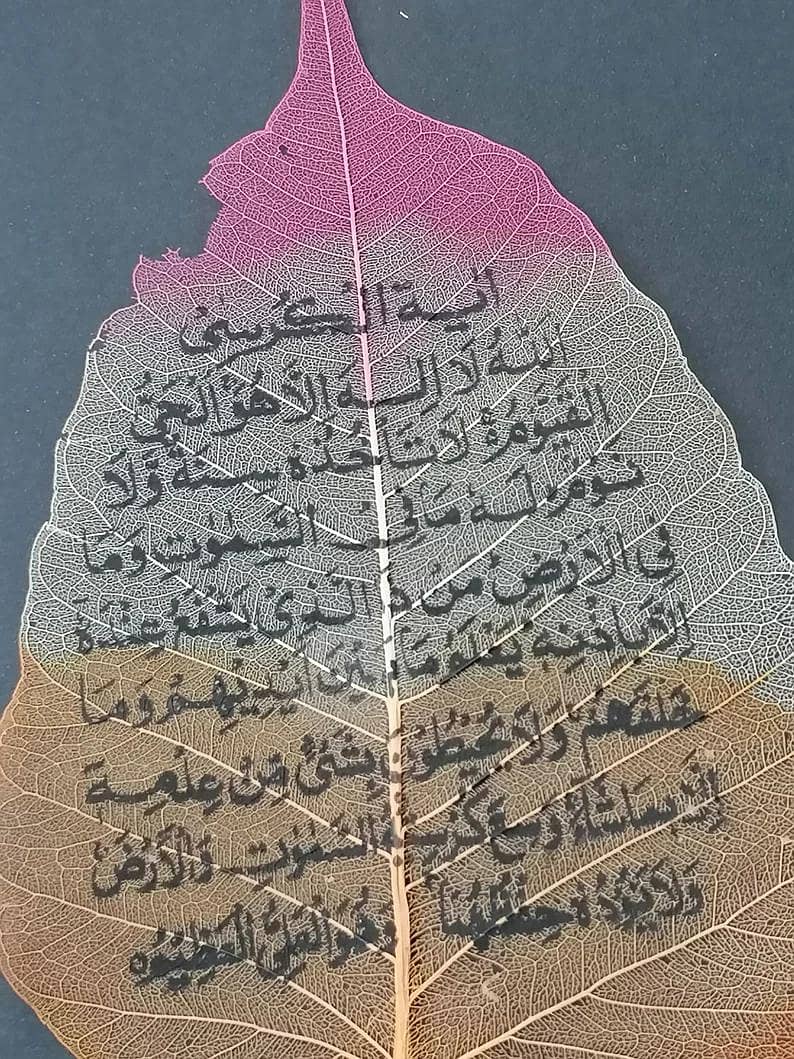 اٰيـة الـكُـرسِىْ
اَللهُ لَا اِلٰـهَ اِلَّا هُوَ اَلْحَيُّ
الْقَيُّوْمُ ۚ لَا تَاْخُذُهٗ سِـنَةٌ وَّلَا
نَوْمٌ ؕ لَـهٗ مَا فِىْ السَّمٰوٰتِ وَمَا
فِى الْاَرْضِ مَنْ ذَا الَّـذِىْ يَشْفَعُ عِنْدَهٗ
اِلَّا بِاِذْنِهٖ يَعْلَمُ مَا بَيْنَ اَيْدِيْهِمْ وَمَا
خَلْفَهُمْ وَلَا يُحِيْطُوْنَ بِشَىْءٍ مِّنْ عِلْمِهٖ
اِلَّا بِمَا شَآءَ وَسِعَ كُرْسِيُّهُ السَّمٰوٰتِ وَالْاَرْضَ
وَلَا يَئُوْدُهٗ حِفْظُهُمَا وَهُوَ الْعَلِىُّ الْعَظِيْمُ